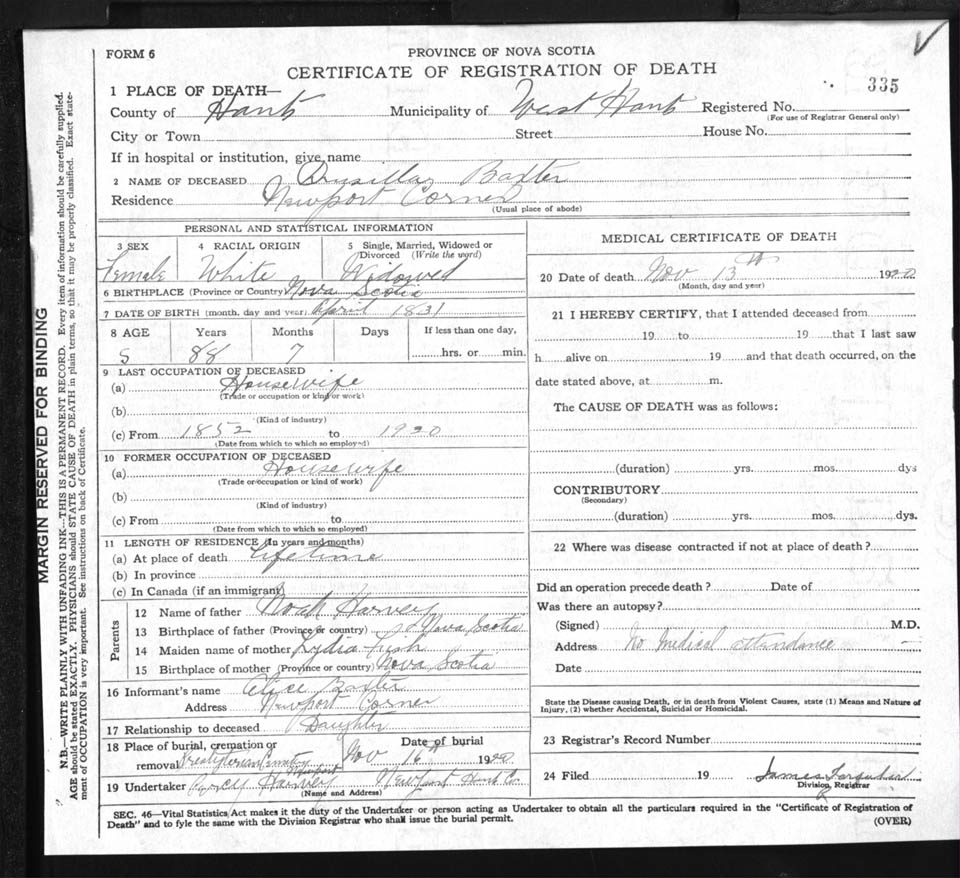 FORM 6
PROVINCE OF NOVA SCOTIA
CERTIFICATE OF REGISTRATION OF DEATH
335
1 PLACE OF DEATH—
County of Hants Municipality of West Hants Registered No.
(For use of Registrar General only)
City or Town Street House No.
If in hospital or institution, give name
2 NAME OF DECEASED Drusilla Baxter
Residence Newport Corner
(Usual place of abode)
PERSONAL AND STATISTICAL INFORMATION
3 SEX 4 RACIAL ORIGIN 5 Single, Married, Widowed or Divorced (Write the word)
Female White Widowed
6 BIRTHPLACE (Province or Country) Nova Scotia
7 DATE OF BIRTH (month, day and year) April 1831
8 AGE Years Months Days If less than one day,
88 7 hrs. or min.
9 LAST OCCUPATION OF DECEASED
(a) Housewife
(Trade or occupation or kind or work)
(b)
(Kind of industry)
(c) From 1852 to 1920
(Date from which to which so employed)
10 FORMER OCCUPATION OF DECEASED
(a) Housewife
(Trade or occupation or kind of work)
(b)
(Kind of industry)
(c) From to
(Date from which to which so employed)
11 LENGTH OF RESIDENCE (In years and months)
(a) At place of death lifetime
(b) In province
(c) In Canada (if an immigrant)
Parents
12 Name of father Noah Harvey
13 Birthplace of father (Province or country) Nova Scotia
14 Maiden name of mother Lydia Fish
15 Birthplace of mother (Province or country) Nova Scotia
16 Informant's name Alice Baxter
Address Newport Corner
17 Relationship to deceased Daughter
18 Place of burial, cremation or removal Presbyterian Cemetery Newport Date of burial Nov 16th 1920
19 Undertaker Percy Harvey Newport Hants Co.
(Name and Address)
MEDICAL CERTIFICATE OF DEATH
20 Date of death Nov 13th 1920
(Month, day and year)
21 I HEREBY CERTIFY, that I attended deceased from
19 to 19 that I last saw
h alive on 19 and that death occurred, on the
date stated above, at m.
The CAUSE OF DEATH was as follows:
(duration) yrs. mos. dys
CONTRIBUTORY
(Secondary)
(duration) yrs. mos. dys.
22 Where was disease contracted if not at place of death?
Did an operation precede death? Date of
Was there an autopsy?
(Signed) M.D.
Address No Medical attendance
Date
State the Disease causing Death, or in death from Violent Causes, state (1) Means and Nature of
Injury, (2) whether Accidental, Suicidal or Homicidal.
23 Registrar's Record Number
24 Filed 19 James Farquhar
Division Registrar
SEC. 46—Vital Statistics Act makes it the duty of the Undertaker or person acting as Undertaker to obtain all the particulars required in the "Certificate of Registration of
Death" and to fyle the same with the Division Registrar who shall issue the burial permit.
(OVER)
MARGIN RESERVED FOR BINDING
N.B.—WRITE PLAINLY WITH UNFADING INK—THIS IS A PERMANENT RECORD. Every item of information should be carefully supplied.
AGE should be stated EXACTLY. PHYSICIANS should STATE CAUSE OF DEATH in plain terms, so that it may be properly classified. Exact state-
ment of OCCUPATION is very important. See instructions on back of Certificate.